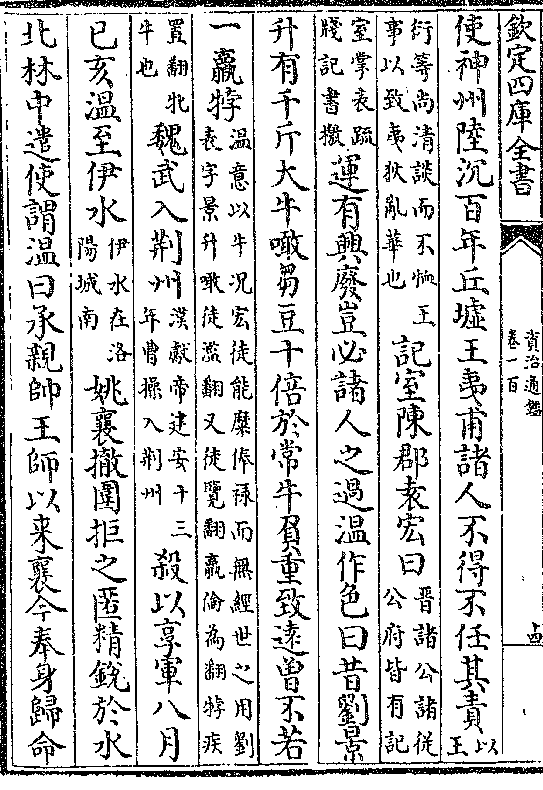 欽定四庫全書
資治通鑑
卷一百
古
使神州陸沉百年丘墟王夷甫諸人不得不任其責以王
衍等尚清談而不恤王
事以致夷狄亂華也
記室陳郡袁宏曰晉諸公諸從
公府皆有記
室掌表疏
牋記書檄
運有興廢豈必諸人之過溫作色曰昔劉景
升有千斤大牛噉芻豆十倍於常牛負重致遠曾不若
一羸牸溫意以牛况宏徒能糜俸禄而無經世之用劉
表字景升噉徒濫翻又徒覽翻羸倫為翻牸疾
置翻牝
牛也
魏武入荆州漢獻帝建安十三
年曹操入荆州
殺以享軍八月
己亥溫至伊水伊水在洛
陽城南
姚襄撤圍拒之匿精鋭於水
北林中遣使謂溫曰承親帥王師以来襄今奉身歸命